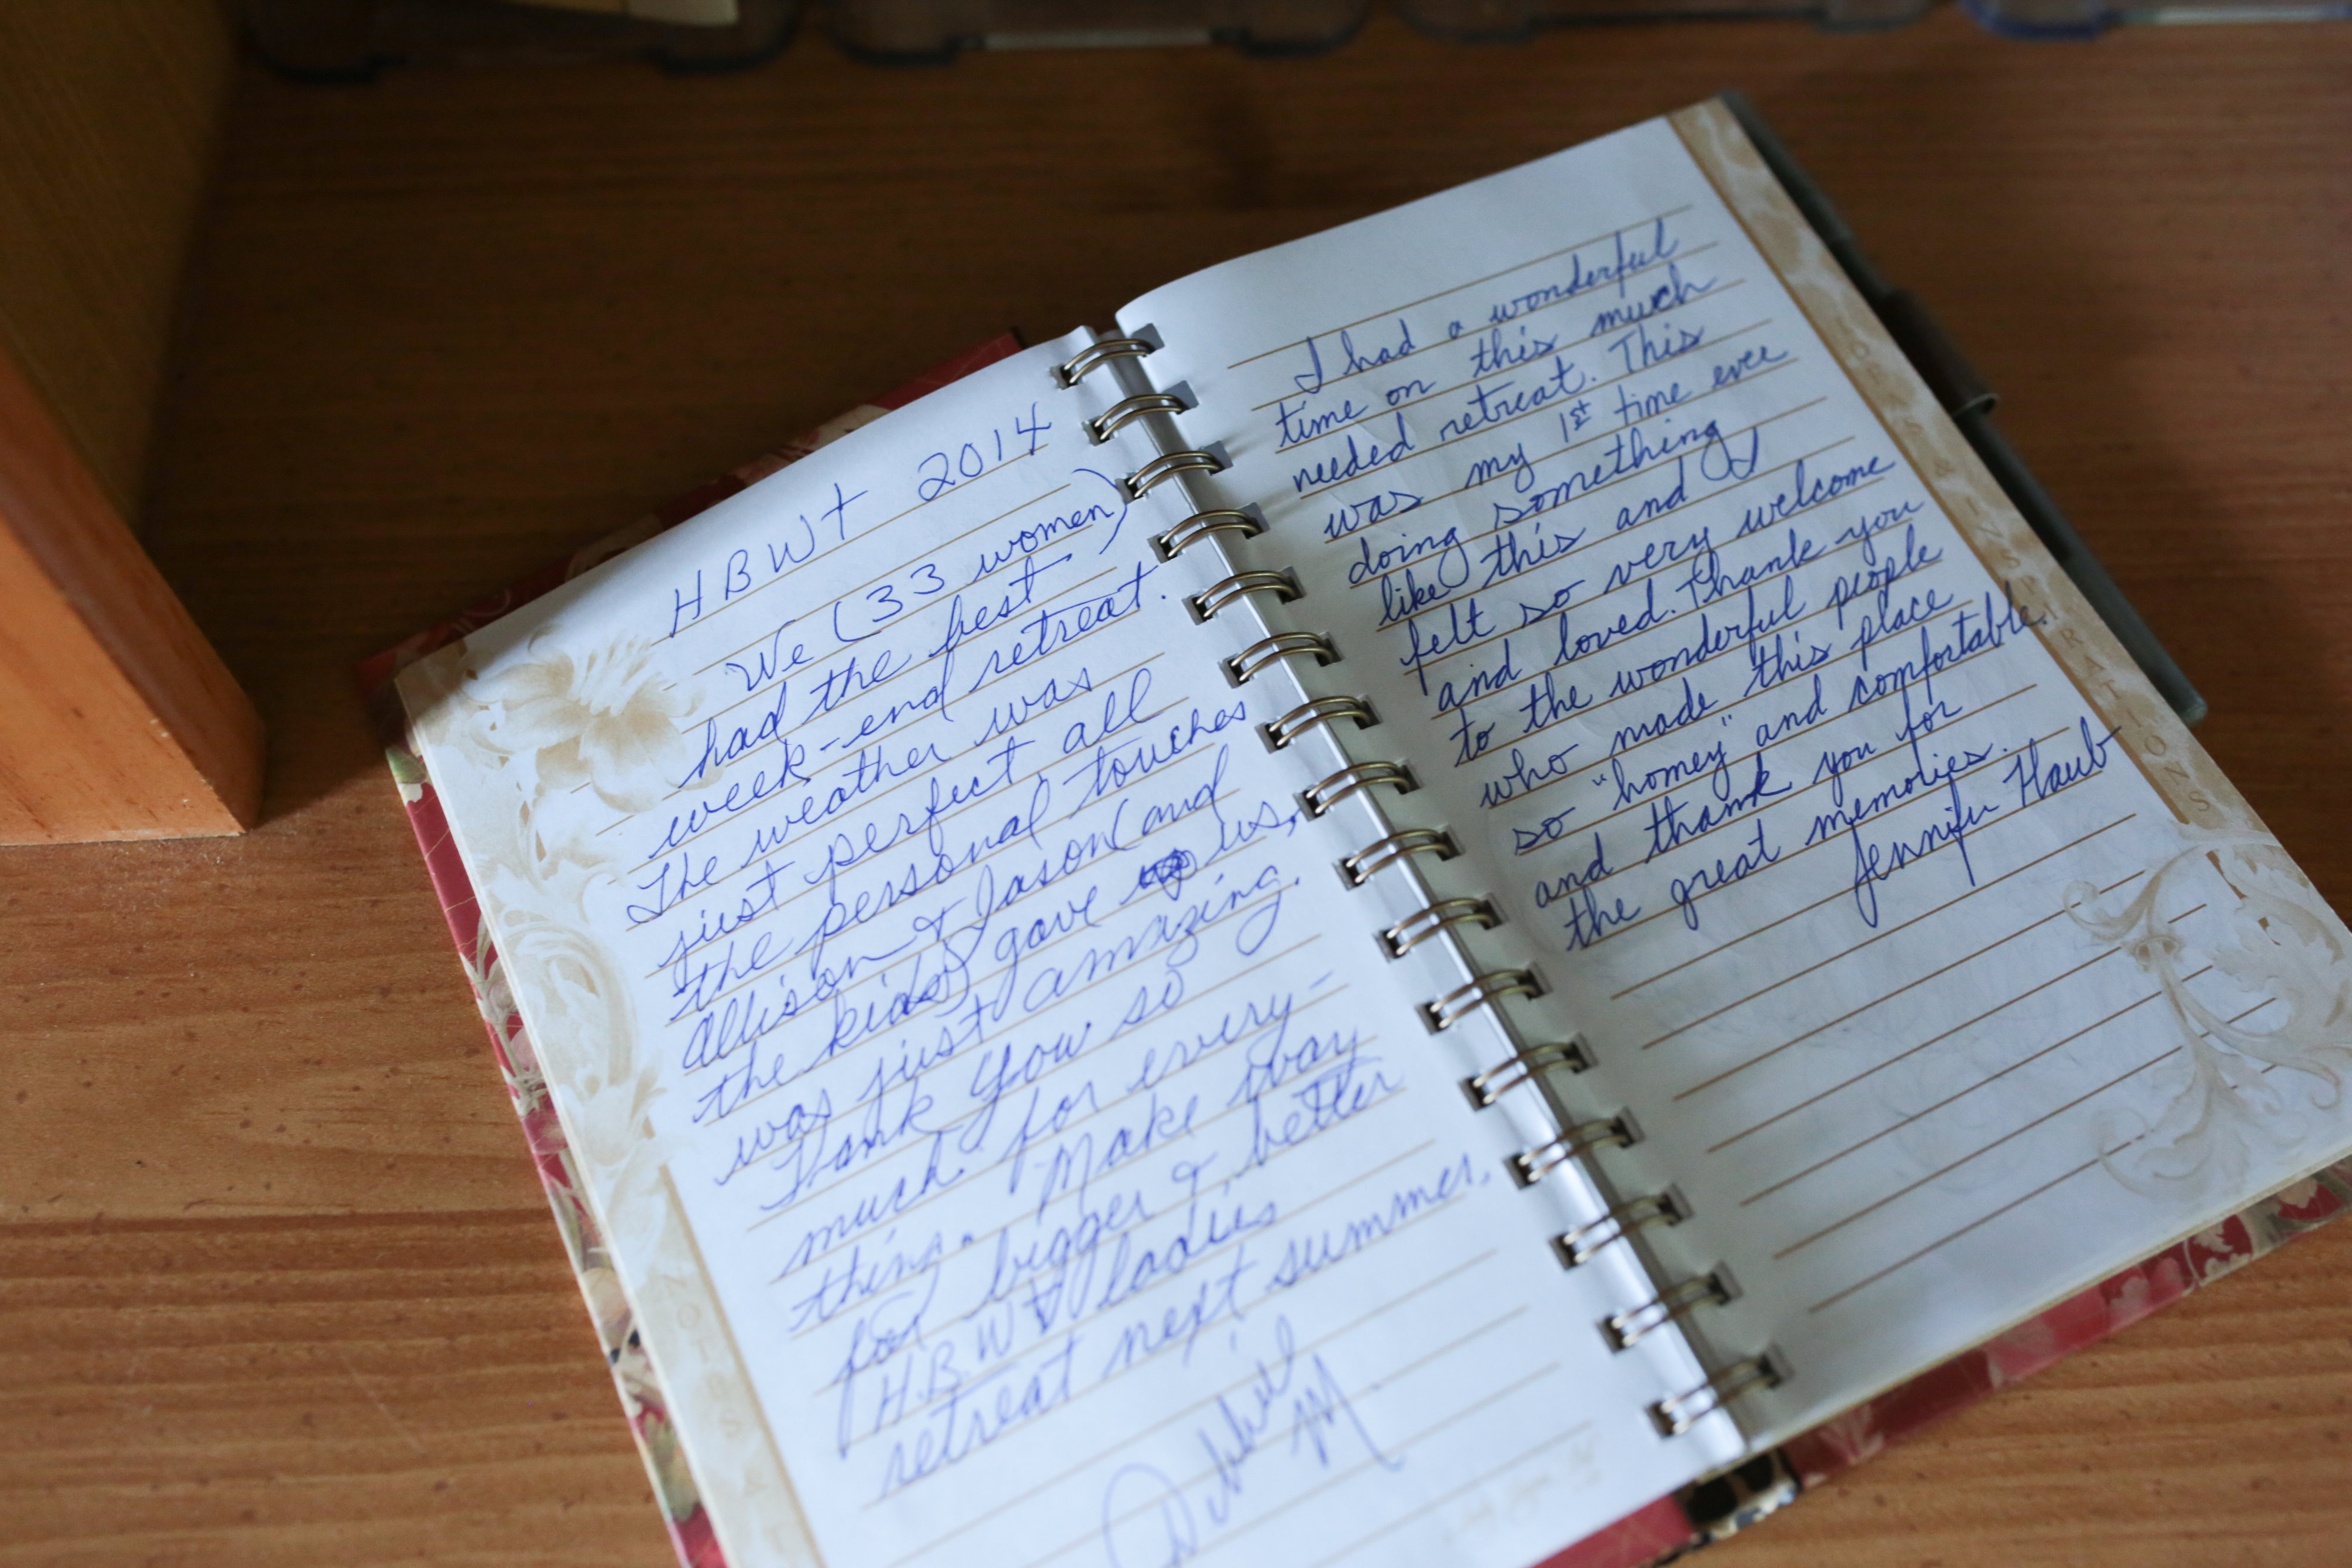 HBWt 2014
We (33 women)
had the best
week-end retreat.
The weather was
just perfect, all
the personal touches
Allison & Jason (and
the kids) gave us,
was just amazing.
Thank You so
much for every-
thing. Make way
for bigger & better
H.B.W ladies
retreat next summer.
Debbie M.
I had a wonderful
time on this much
needed retreat. This
was my 1st time ever
doing something
like this and I
felt so very welcome
and loved. Thank you
to the wonderful people
who made this place
so "homey" and comfortable.
and thank you for
the great memories.
Jennifer Haub
NOTES &
FOR NOTES & INSPIRATIONS